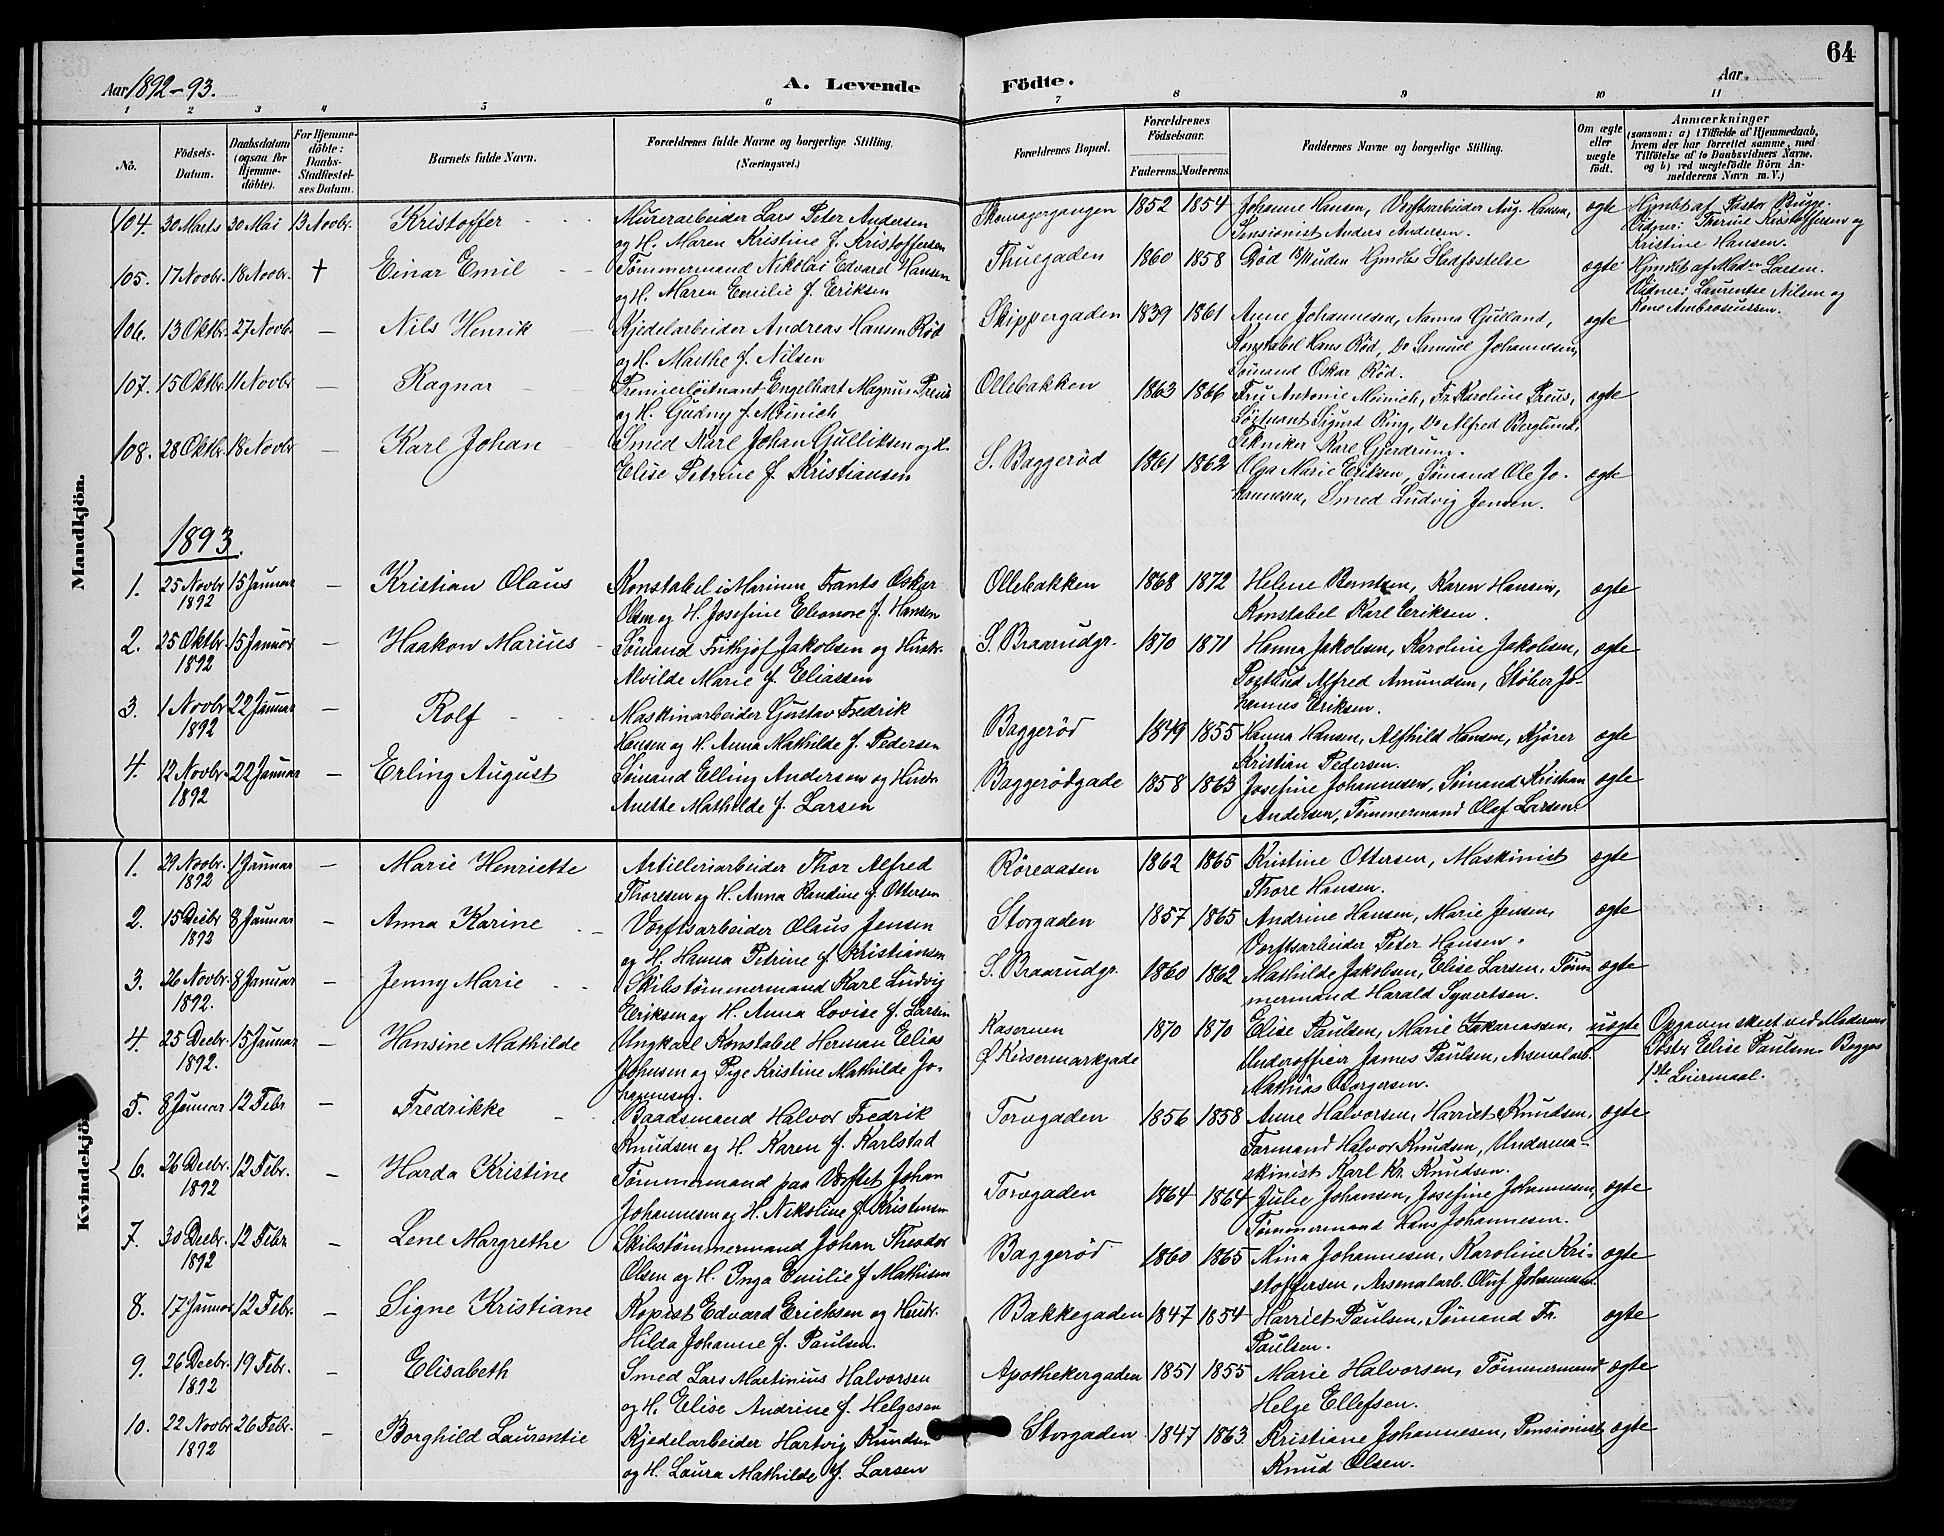 Aar 1892-93.
A. Levende
Födte.
Aar
64
1 2 3 4 5 6 7 8 9 10 11
No.
Födsels-Datum.
Daabsdatum (ogsaa for Hjemme-döbte).
For Hjemme-döbte: Daabs-Stadfæstel-ses Datum.
Barnets fulde Navn.
Forældrenes fulde Navne og borgerlige Stilling. (Næringsvei.)
Forældrenes Bopæl.
Forældrenes Födselsaar.
Faderens. Moderens.
Faddernes Navne og borgerlige Stilling.
Om ægte eller uægte födt.
Anmærkninger (saasom: a) i Tilfælde af Hjemmedaab, hvem der har forrettet samme, med Tilföielse af to Daabsvidners Navne, og b) ved uægtefödte Börn An-melderens Navn m. V.)
Mandkjön.
104. 30 Marts 30 Mai 13 Novbr. Kristoffer Murerarbeider Lars Peter Andersen
og H. Maren Kristine f. Kristoffersen
Skomagergangen 1852 1854 Johanne Hansen, Værftsarbeider Aug. Hansen,
Pensionist Anders Andersen.
ægte Hjmdbt af Pastor Bugge.
Vidner: Therese Kristoffersen og
Kristine Hansen.
105. 17 Novbr. 18 Novbr. † Einar Emil Tömmermand Nikolai Edvard Hansen
og H. Maren Emilie f. Eriksen
Thuegaden 1860 1858 Död uden Stadfæstelse ægte
Hjmdbt af Mad. Larsen.
Vidner: Laurentse Nilsen og
Kone Ambrosiussen.
106. 13 Oktbr. 27 Novbr. — Nils Henrik Kjedelarbeider Andreas Hansen Röd
og H. Marthe f. Nilsen
Skippergaden 1839 1861 Anne Johannesen, Nanna Gulland,
Konstabel Hans Röd, Do Samuel Johannesen,
Sömand Oskar Röd.
ægte
107. 15 Oktbr. 11 Novbr — Ragnar Premierlöitnant Engelhart Magnus Preus
og H. Gudny f. Meinich
Ollebakken 1863 1866 Fru Antonie Meinich, Fr. Karoline Preus,
Löitnant Sigurd Ring, Do Alfred Berglund,
Tekniker Karl Gjerdrum.
ægte
108. 28 Oktbr. 18 Novbr — Karl Johan Smed Karl Johan Gulliksen og H.
Elise Petrine f. Kristiansen
S. Baggeröd 1861 1862 Olga Marie Eriksen, Sömand Ole Jo-
hannesen, Smed Ludvig Jensen.
ægte
1893.
1. 25 Novbr 1892 15 Januar — Kristian Olaus Konstabel i Marinen Frants Oskar
Olsen og H. Josefine Eleonore f. Hansen
Ollebakken 1868 1872 Helene Berntsen, Karen Hansen,
Konstabel Karl Eriksen.
ægte
2. 25 Oktbr. 1892 15 Januar — Haakon Marius Sömand Frithjof Jakobsen og Hustr.
Alvilde Marie f. Eliassen
S. Braarudgr. 1870 1871 Hanna Jakobsen, Karoline Jakobsen,
Postbud Alfred Amundsen, Stöber Jo-
hannes Eriksen.
ægte
3. 1 Novbr 1892 22 Januar — Rolf Maskinarbeider Gustav Fredrik
Hansen og H. Anna Mathilde f. Pedersen
Baggeröd 1849 1855 Hanna Hansen, Alfhild Hansen, Kjörer
Kristian Pedersen.
ægte
4. 12 Novbr. 1892 22 Januar — Erling August Sömand Elling Andersen og Hustr.
Anette Mathilde f. Larsen
Baggerödgade 1858 1863 Josefine Johannesen, Sömand Kristian
Andersen, Tömmermand Olof Larsen.
ægte
Kvindekjön.
1. 29 Novbr. 1892 1 Januar — Marie Henriette Artilleriarbeider Thor Alfred
Thoresen og H. Anna Randine f. Ottersen
Röreaasen 1862 1865 Kristine Ottersen, Maskinist
Thore Hansen.
ægte
2. 15 Decbr 1892 8 Januar — Anna Karine Værftsarbeider Olaus Jensen
og H. Hanna Petrine f. Kristiansen
Storgaden 1857 1865 Andrine Hansen, Marie Jensen,
Værftsarbeider Peter Hansen.
ægte
3. 26 Novbr. 1892. 8 Januar — Jenny Marie Skibstömmermand Karl Ludvig
Eriksen og H. Anna Lovise f. Larsen
S. Braarudgr. 1860 1862 Mathilde Jakobsen, Elise Larsen, Töm-
mermand Harald Syvertsen.
ægte
4. 25 Decbr. 1892. 15 Januar — Hansine Mathilde Ungkarl Konstabel Herman Elias
Johnsen og Pige Kristine Mathilde Jo-
hannesen.
Kasernen
Ö. Keisermarkgade
1870 1870 Elise Paulsen, Marie Zakariassen,
Underofficer James Paulsen, Arsenalarb.
Mathias Borgersen.
uægte Opgaven skeet ved Moderens
Söster Elise Paulsen. Begges
1ste Leiermaal.
5. 8 Januar 12 Febr — Fredrikke Baadsmand Halvor Fredrik
Knudsen og H. Karen f. Karlstad
Torvgaden 1856 1858 Anne Halvorsen, Harriet Knudsen,
Formand Halvor Knudsen, Underma-
skinist Karl Kr. Knudsen.
ægte
6. 26 Decbr. 1892 12 Febr. — Harda Kristine Tömmermand paa Værftet Johan
Johannesen og H. Nikoline f. Kristensen
Torvgaden 1864 1864 Julie Johansen, Josefine Johannesen,
Tömmermand Hans Johannesen.
ægte
7. 30 Decbr. 1892 12 Febr — Lene Margrethe Skibstömmermand Johan Theodor
Olsen og H. Inga Emilie f. Mathisen
Baggeröd 1860 1865 Mina Johannesen, Karoline Kri-
stoffersen, Arsenalarb. Oluf Johannesen.
ægte
8. 17 Januar 12 Febr. — Signe Kristiane Kopist Edvard Eriksen og Hustr.
Hilda Johanne f. Paulsen.
Bakkegaden 1847 1854 Harriet Paulsen, Sömand Fr.
Paulsen.
ægte
9. 26 Decbr. 1892 19 Febr. — Elisabeth Smed Lars Martinius Halvorsen
og H. Elise Andrine f. Helgesen
Apothekergaden 1851 1855 Marie Halvorsen, Tömmermand
Helge Ellefsen.
ægte
10. 22 Novbr 1892 26 Febr. — Borghild Laurentie Kjedelarbeider Hartvig Knudsen
og H. Laura Mathilde f. Larsen
Storgaden 1847 1863 Kristiane Johannesen, Pensionist
Knud Olsen.
ægte